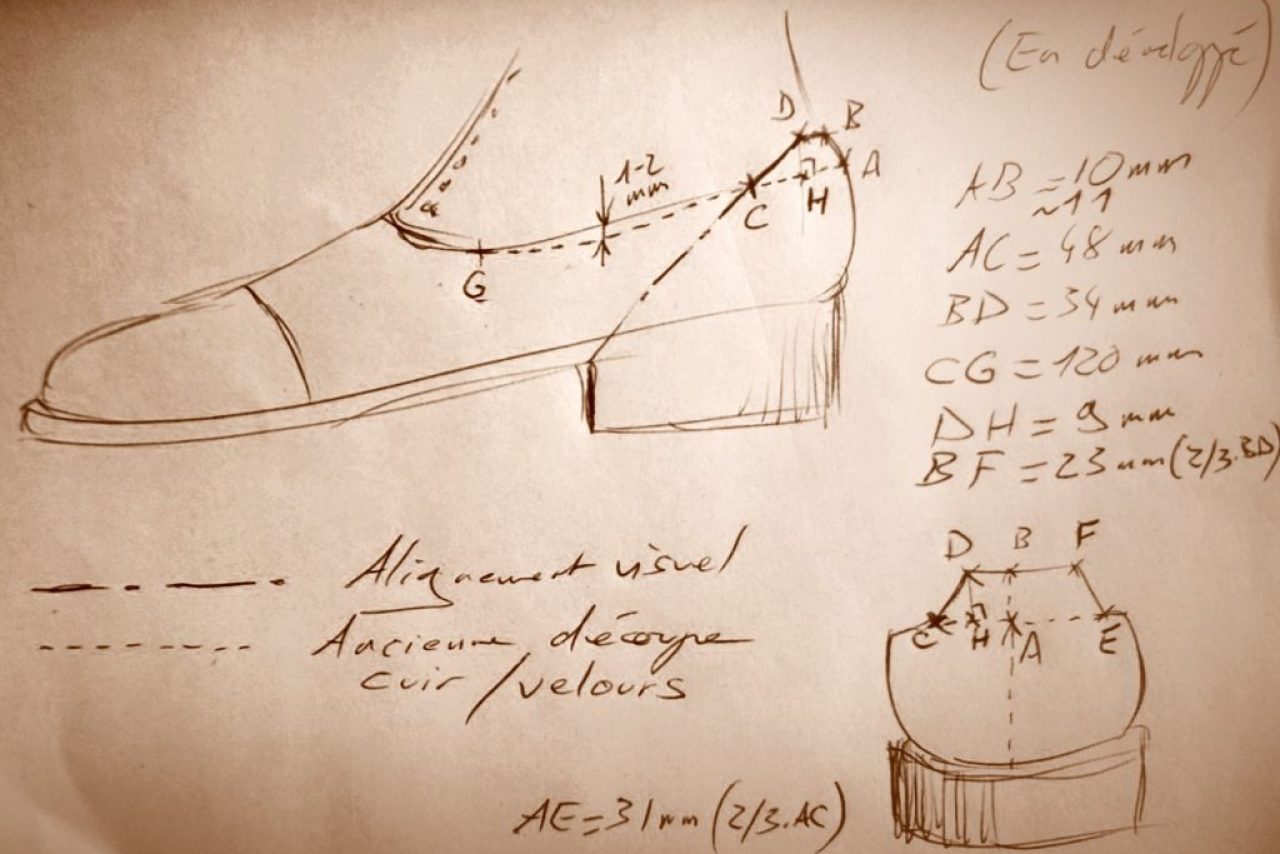 (En développé)
D B
A
H
C
1-2
mm
G
AB = 10 mm
~11
AC = 48 mm
BD = 34 mm
CG = 120 mm
DH = 9 mm
BF = 23 mm (2/3.BD)
Alignement visuel
Ancienne découpe
cuir / velours
D B F
C H A E
AE = 31 mm (2/3.AC)